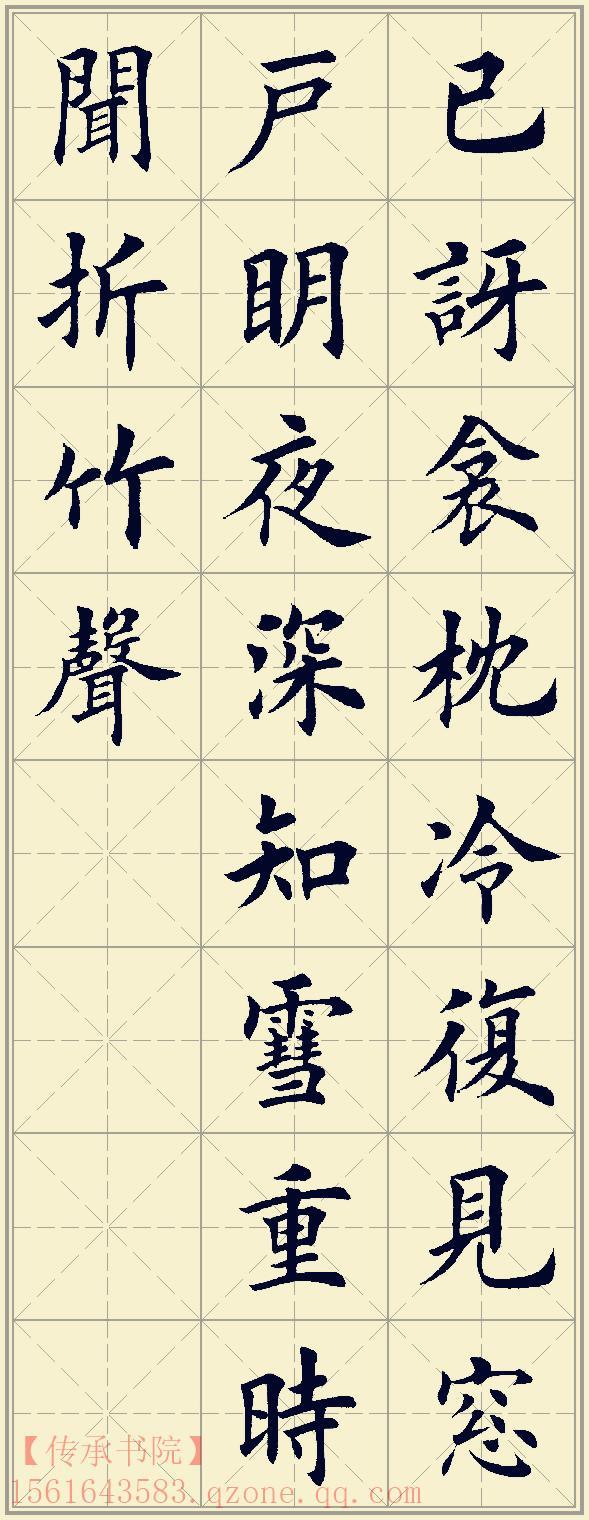 已訝衾枕冷復見窓
戶明夜深知雪重時
聞折竹聲
【传承书院】
1561643583.qzone.qq.com